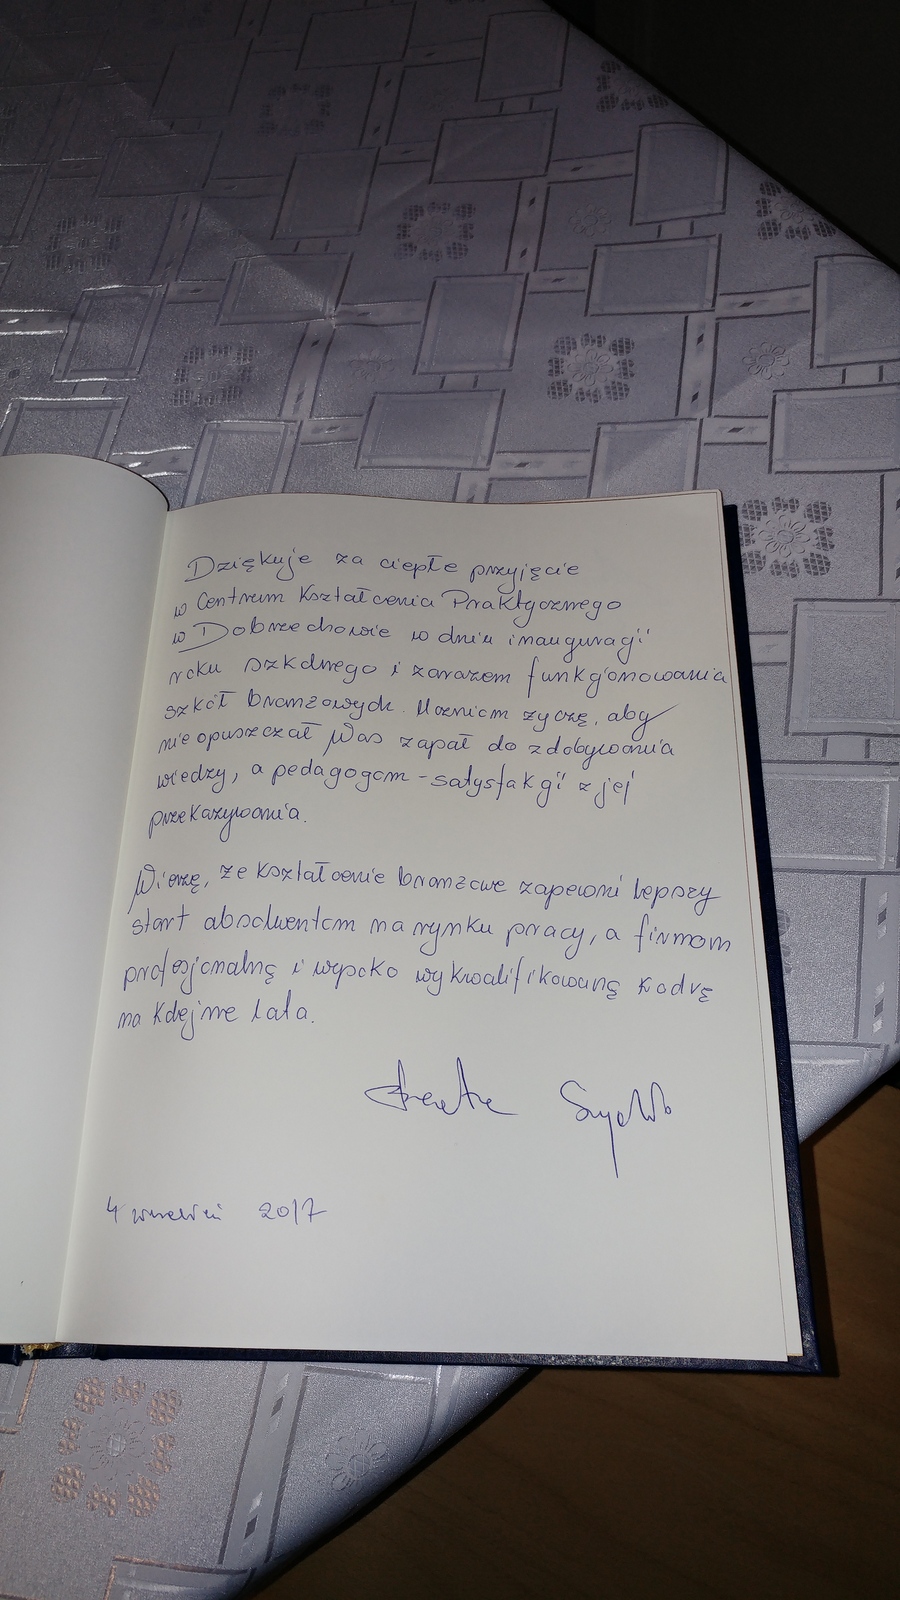 Dziękuje za ciepłe przyjęcie
w Centrum Kształcenia Praktycznego
w Dobrzechowie w dniu inauguracji
roku szkolnego i zarazem funkcjonowania
szkół branżowych. Uczniom życzę, aby
nie opuszczał Was zapał do zdobywania
wiedzy, a pedagogom - satysfakcji z jej
przekazywania.
Wierzę, że kształcenie branżowe zapewni lepszy
start absolwentom na rynku pracy, a firmom
profesjonalną i wysoko wykwalifikowaną kadrę
na kolejne lata.
4 wrzesień 2017